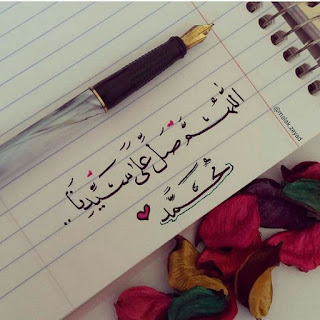 اللّٰهُمَّ صَلِّ عَلَى سَيِّدِنَا..
مُحَمَّد ♥
@malak.zayad